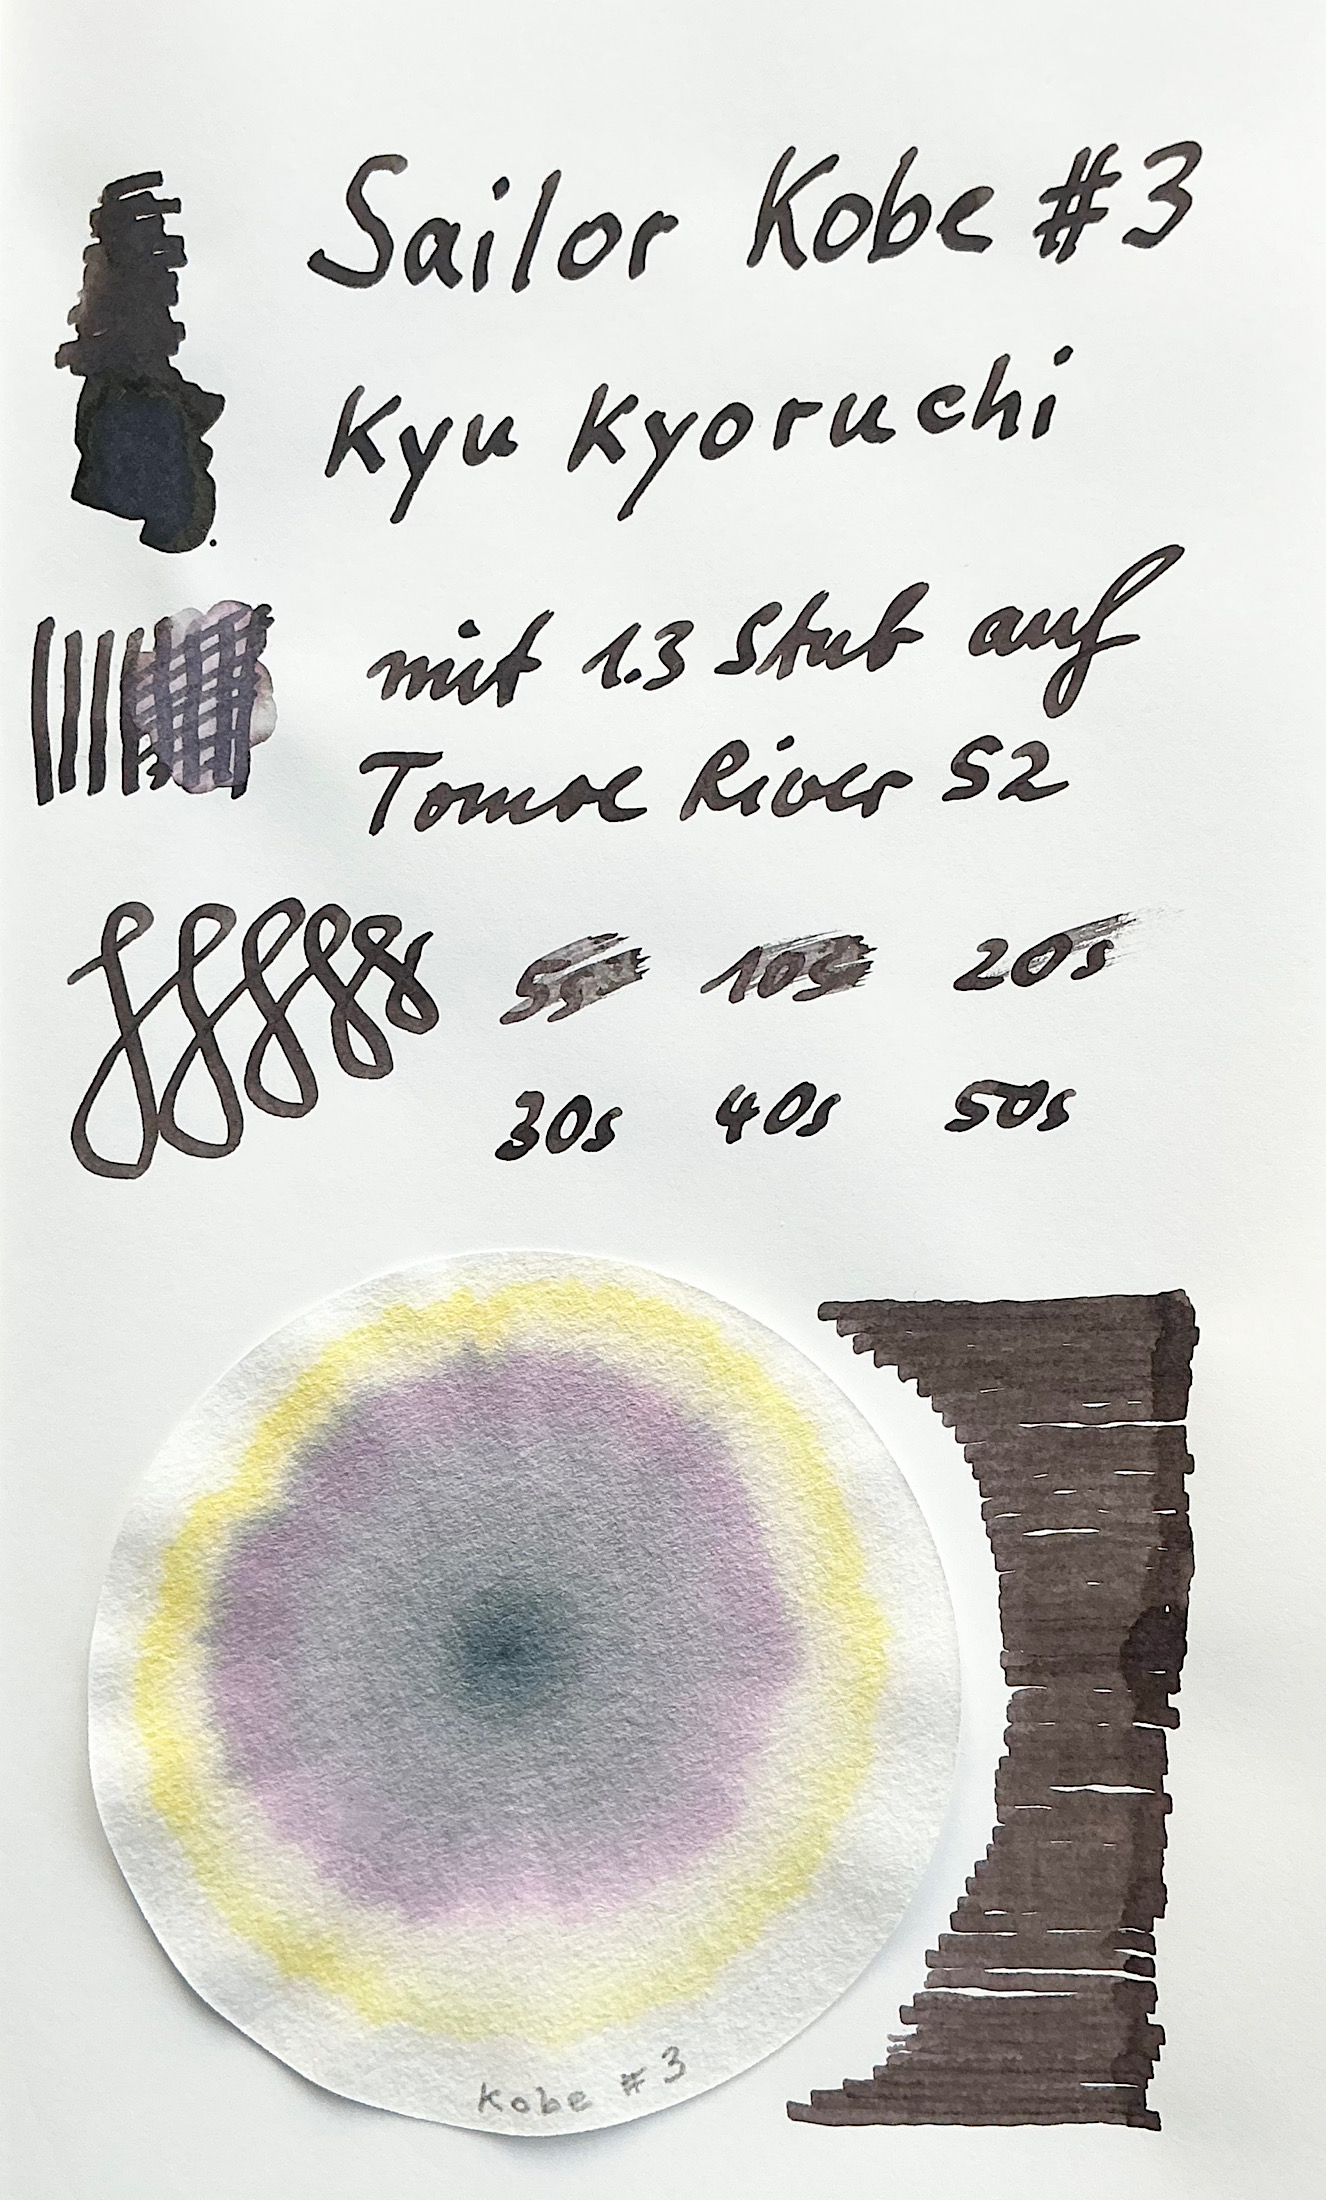 Sailor Kobe #3
Kyu Kyoruchi
mit 1.3 Stub auf
Tomoe River S2
5s 10s 20s
30s 40s 50s
Kobe #3